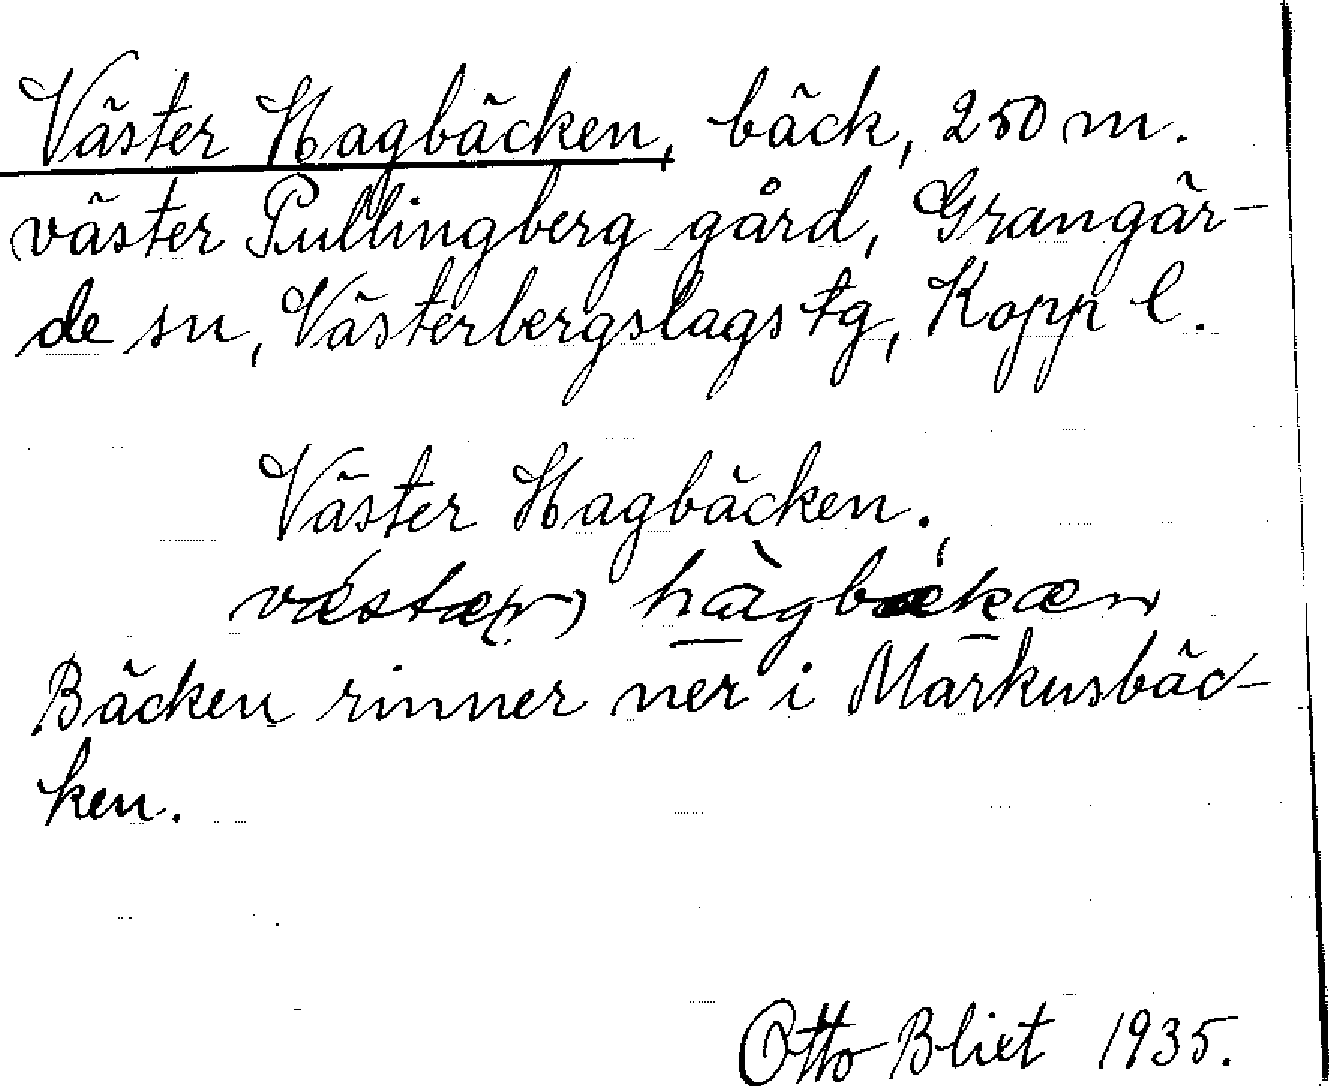 Väster Hagbäcken, bäck, 250 m.
väster Pullingberg gård, Grangär-
de sn, Västerbergslags tg, Kopp l.
Väster Hagbäcken.
væstær) hàgbækæn
Bäcken rinner ner i Markusbäc-
ken.
Otto Blixt 1935.